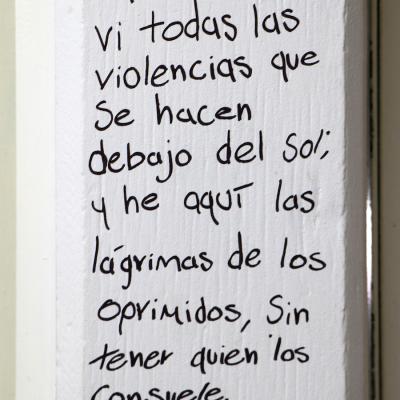 vi todas las
violencias que
se hacen
debajo del sol;
y he aquí las
lágrimas de los
oprimidos, sin
tener quien los
consuele.